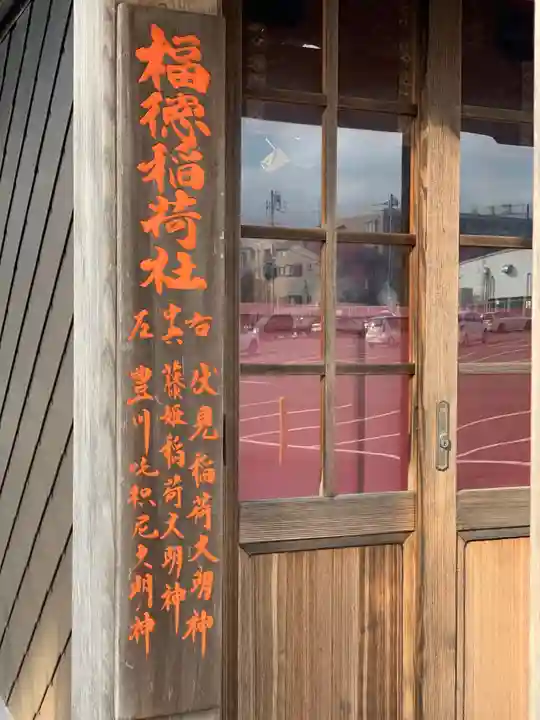 福徳稲荷社
右 伏見稲荷大明神
中央 藤姫稲荷大明神
左 豊川吒枳尼大明神